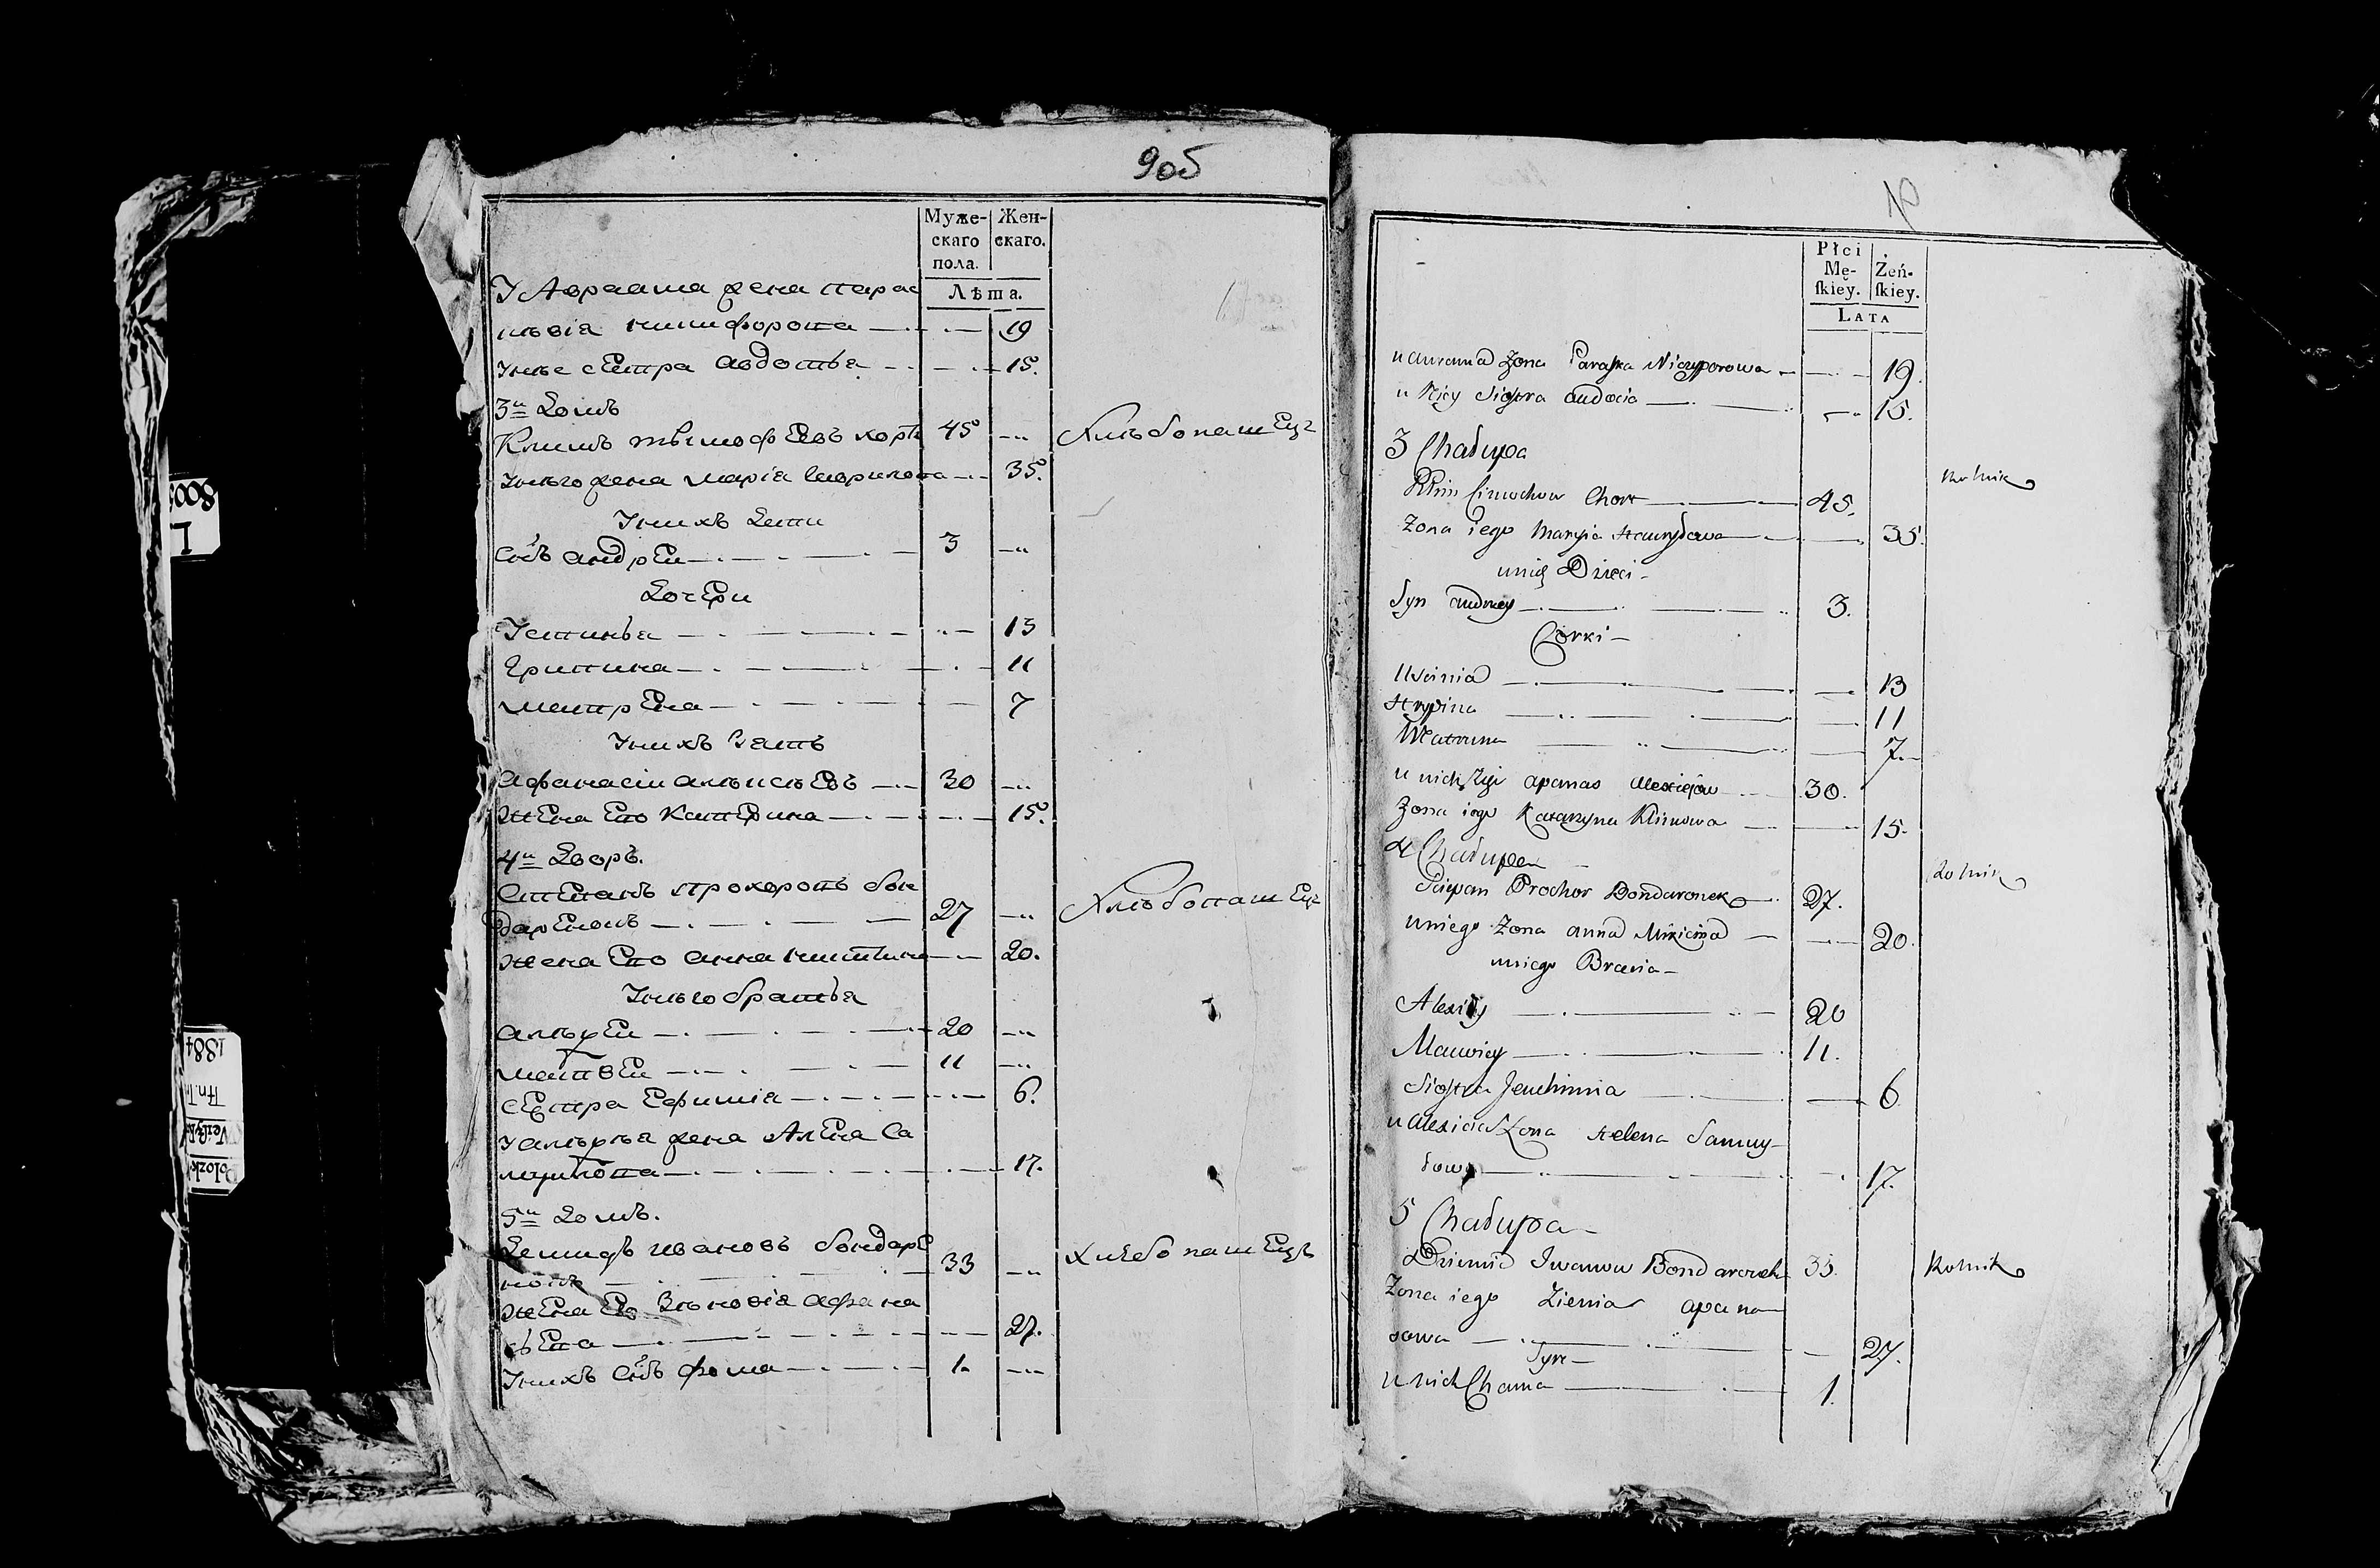 9об
Муже- Жен-
скаго скаго.
пола.
Лѣта.
У Авраама жена парас
ковія ничифорова 19
унее сестра авдотья 15.
3й Домъ
Климъ тымофѣевъ хортъ 45 Хлѣбопашец
унего жена марія гаврилова 35.
Унихъ дети
Снъ андреи 3
Дочери
Устинья 13
Грипина 11
матрена 7
Унихъ зять
Афанасіи алѣксѣевъ 30
жена его катерина 15.
4й Дворъ.
Степанъ прохоровъ бон
даренокъ 27 Хлѣбопашец
жена его анна никитина 20.
Унего братья
алѣксеи 20
матвеи 11
сестра ефимія 6.
у алѣксѣя жена Алена Са
муилова 17.
5й Домъ.
Демидъ ивановъ бондаре
нокъ 33 хлебопашецъ
жена его Зѣновія афана
сьева 27.
Унихъ Снъ фома 1
10
Płci
Mę- Żeń-
ſkiey. ſkiey.
LATA
u awrama żona Paraska Niczyporowa 19.
u Niey Siostra audocia 15.
3 Chałupa
Klim Cimochow Chort 45. Rolnik
Zona iego Maryia Hawryłowa 35.
unich Dzieci
Syn andrzey 3.
Corki
Uscinia 13
Hrypina 11
Matruna 7.
u nich Zięć apanas alexiejow 30.
Zona iego Katarzyna Klimowa 15.
4 Chałupa
Sciepan Prochor Bondaronek 27. Rolnik
uniego Zona anna Mikicina 20.
uniego Bracia
Alexiey 20
Macwiey 11.
Siostra Jeuchimia 6
u alexieia Zona Helena Samuy-
łowa 17.
5 Chałupa
Dziemid Iwanow Bondaronek 33. Rolnik
Zona iego Zienia apana
sowa 27.
Syn
u nich Choma 1.